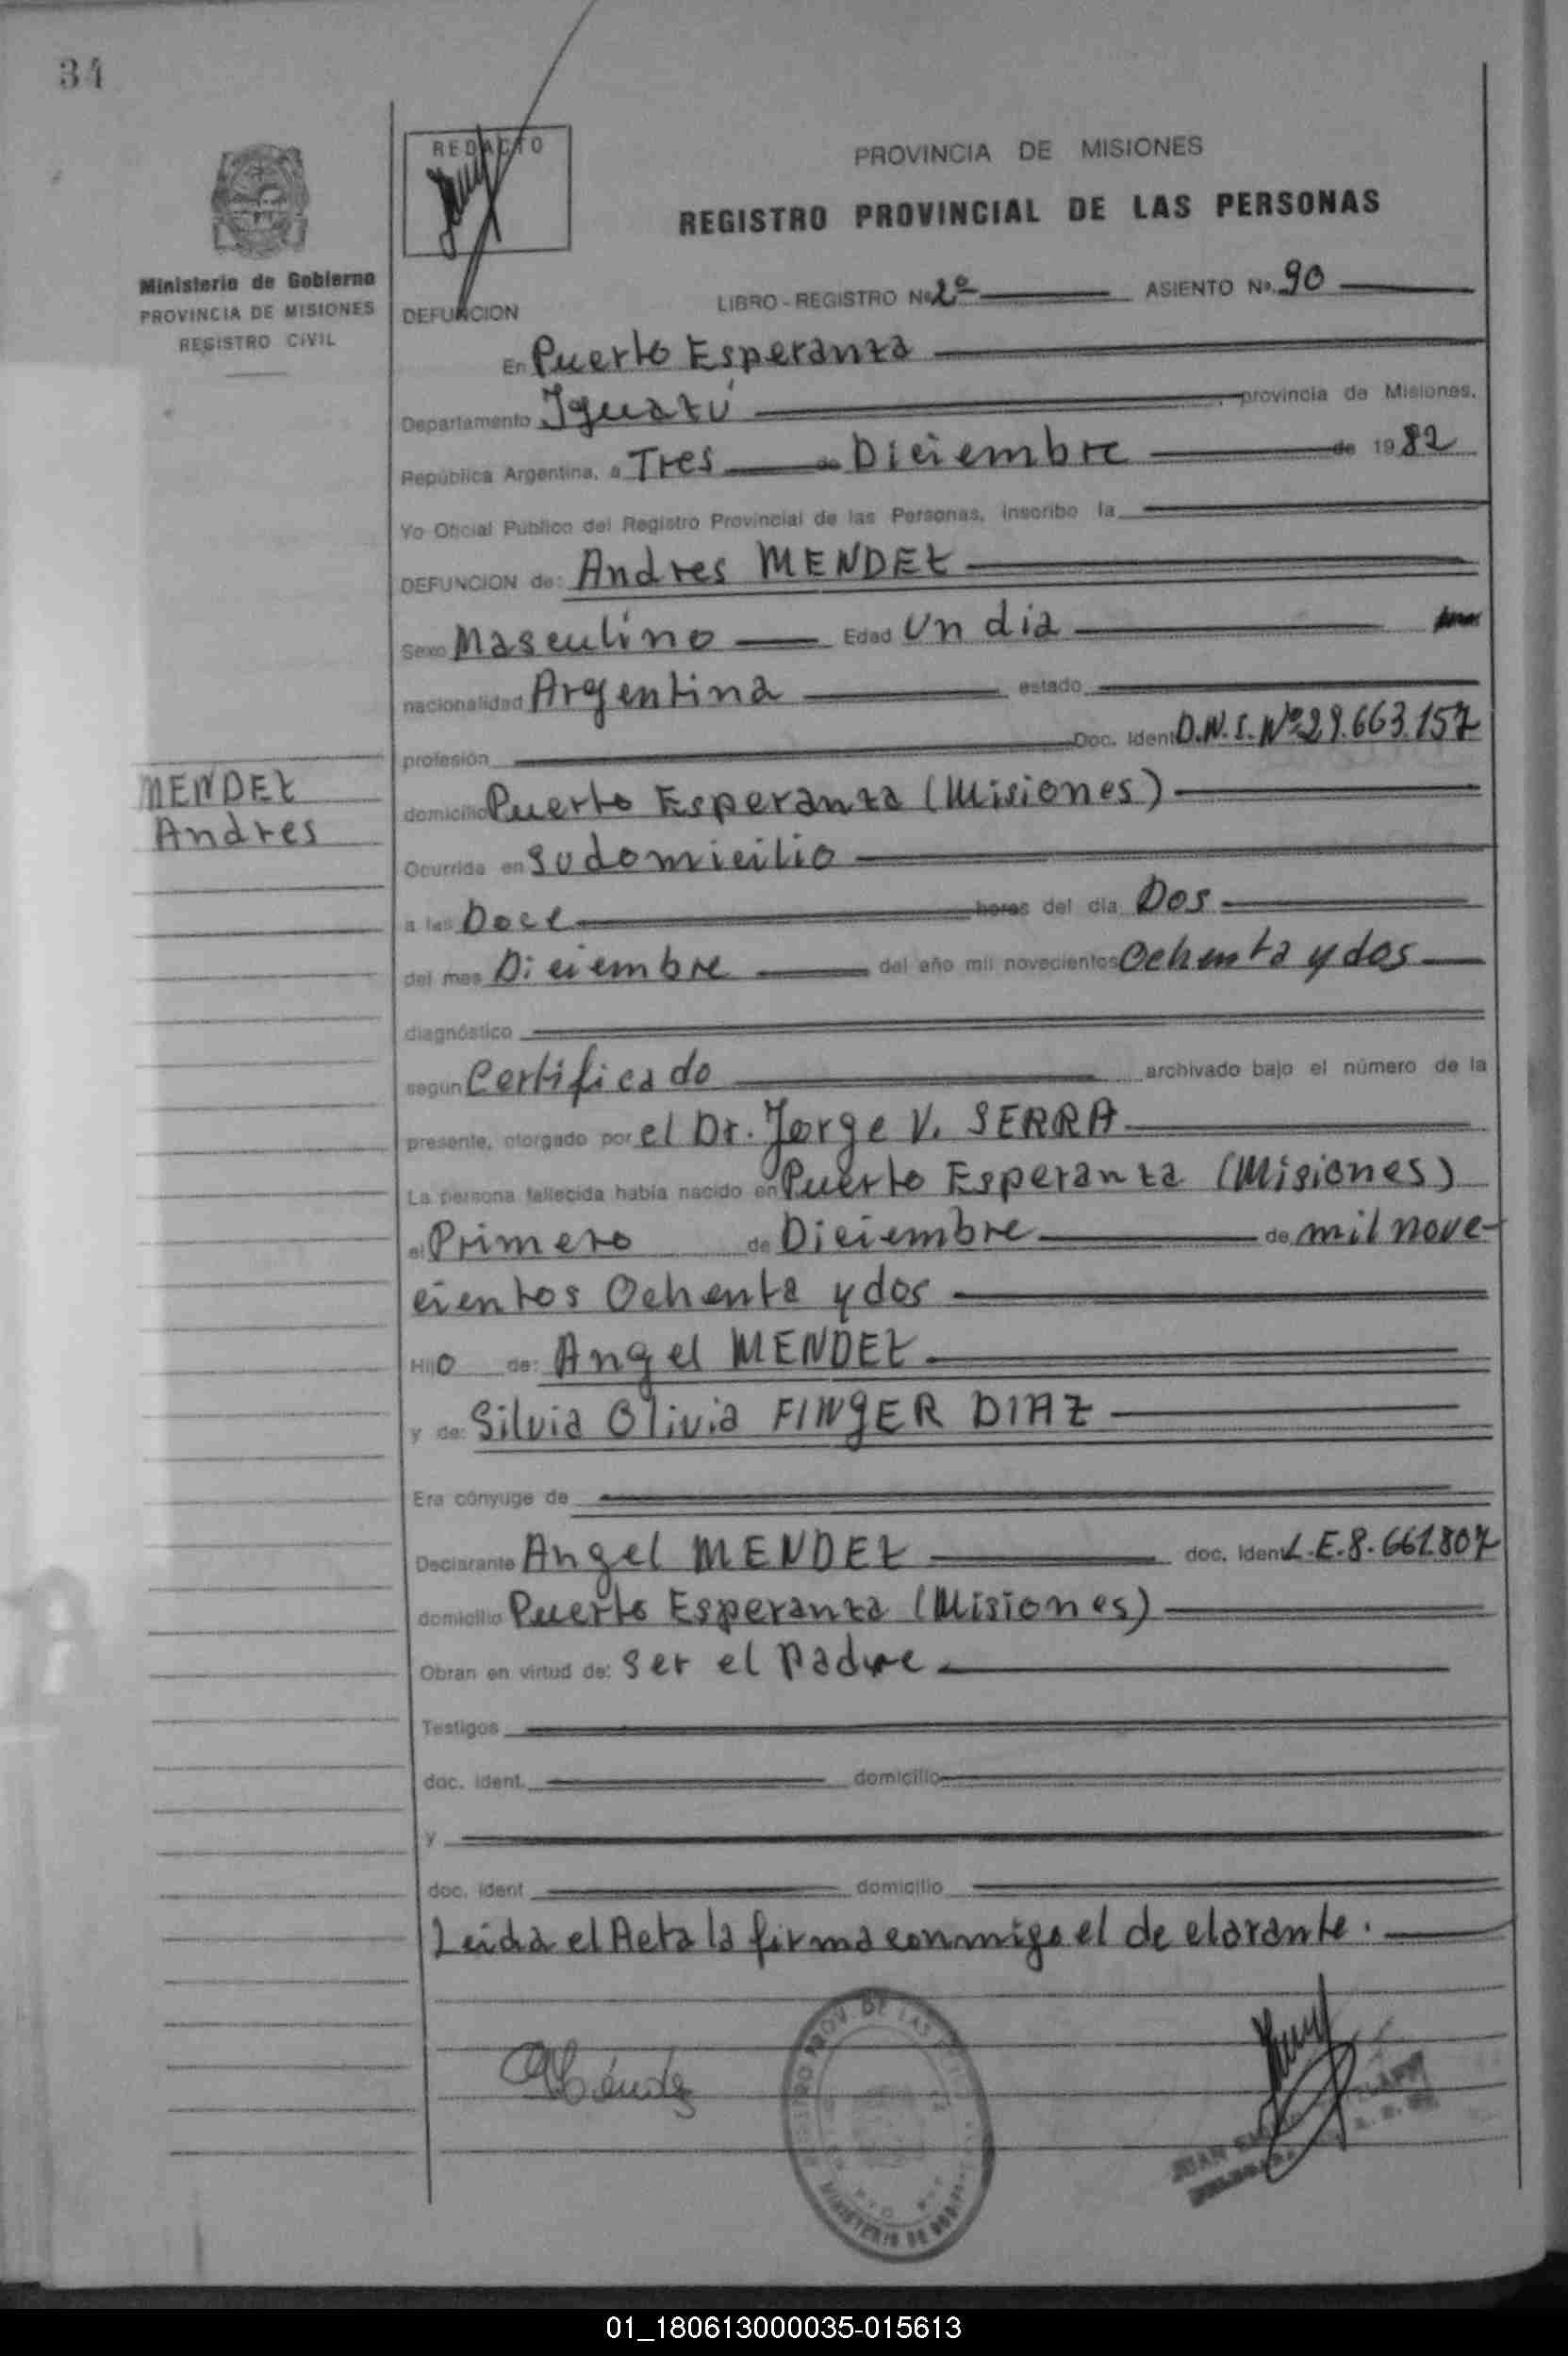 34
REDACTO
PROVINCIA DE MISIONES
REGISTRO PROVINCIAL DE LAS PERSONAS
Ministerio de Gobierno
PROVINCIA DE MISIONES
REGISTRO CIVIL
LIBRO - REGISTRO Nº 2º ASIENTO Nº 90
DEFUNCION
En Puerto Esperanza
Departamento Iguazú, provincia de Misiones.
República Argentina, a Tres de Diciembre de 1982
Yo Oficial Público del Registro Provincial de las Personas, inscribo la
DEFUNCION de: Andres MENDEZ
Sexo Masculino Edad Un dia
nacionalidad Argentina estado
profesión Doc. Ident D.N.I. Nº 29.663.157
MENDEZ
Andres
domicilio Puerto Esperanza (Misiones)
Ocurrida en su domicilio
a las Doce horas del día Dos
del mes Diciembre del año mil novecientos Ochenta y dos
diagnóstico
según Certificado archivado bajo el número de la
presente, otorgado por el Dr. Jorge V. SERRA
La persona fallecida había nacido en Puerto Esperanza (Misiones)
el Primero de Diciembre de mil nove-
cientos Ochenta y dos
Hijo de: Angel MENDEZ
y de: Silvia Olivia FINGER DIAZ
Era cónyuge de
Declarante Angel MENDEZ doc. Ident L.E. 8.661.807
domicilio Puerto Esperanza (Misiones)
Obran en virtud de: ser el Padre
Testigos
doc. ident. domicilio
y
doc. ident domicilio
Leida el Acta la firma conmigo el declarante.
Méndez
MINISTERIO DE
JUAN
01_180613000035-015613